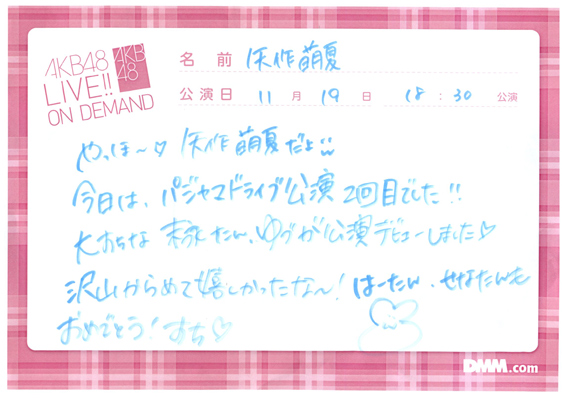 AKB48
LIVE!!
ON DEMAND
AKB
48
名 前 矢作萌夏
公演日 11 月 19 日 18:30 公演
やっほ〜♡ 矢作萌夏だよ
今日は、パジャマドライブ公演2回目でした!!
大もちな 末永たん、ゆづが公演デビューしました♡
沢山からめて嬉しかったな〜! はーたん、せなたんも
おめでとう! すち♡
DMM.com